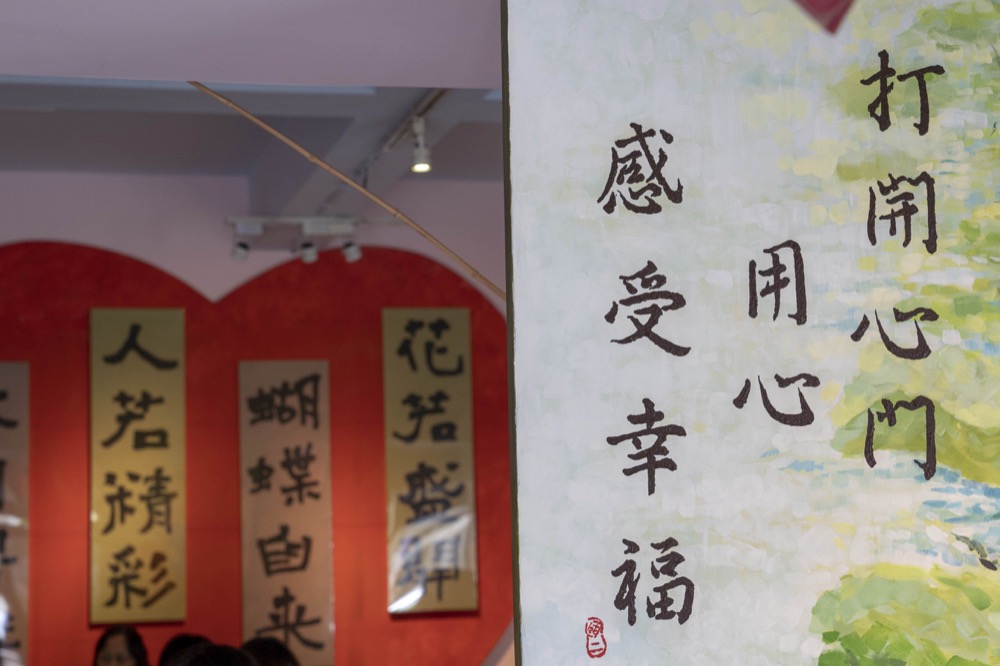 打開心門
用心
感受幸福
花若盛開
蝴蝶自来
人若精彩